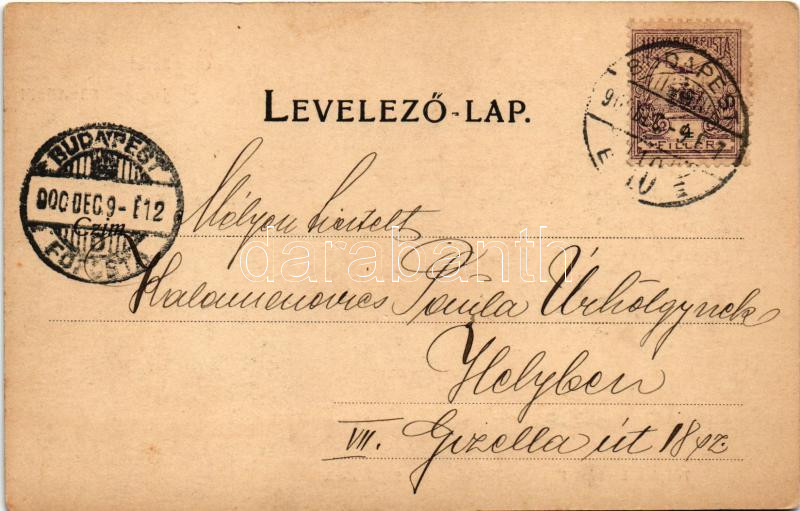 LEVELEZŐ-LAP.
MAGYAR KIR. POSTA
4
FILLÉR
BUDAPEST
BUDAPEST
900 DEC. 9 - É12
FŐPOSTA
Czím
Mélyen tisztelt
Paula Úrhölgynek
Helyben
VII. Gizella út 18 sz.
darabanth